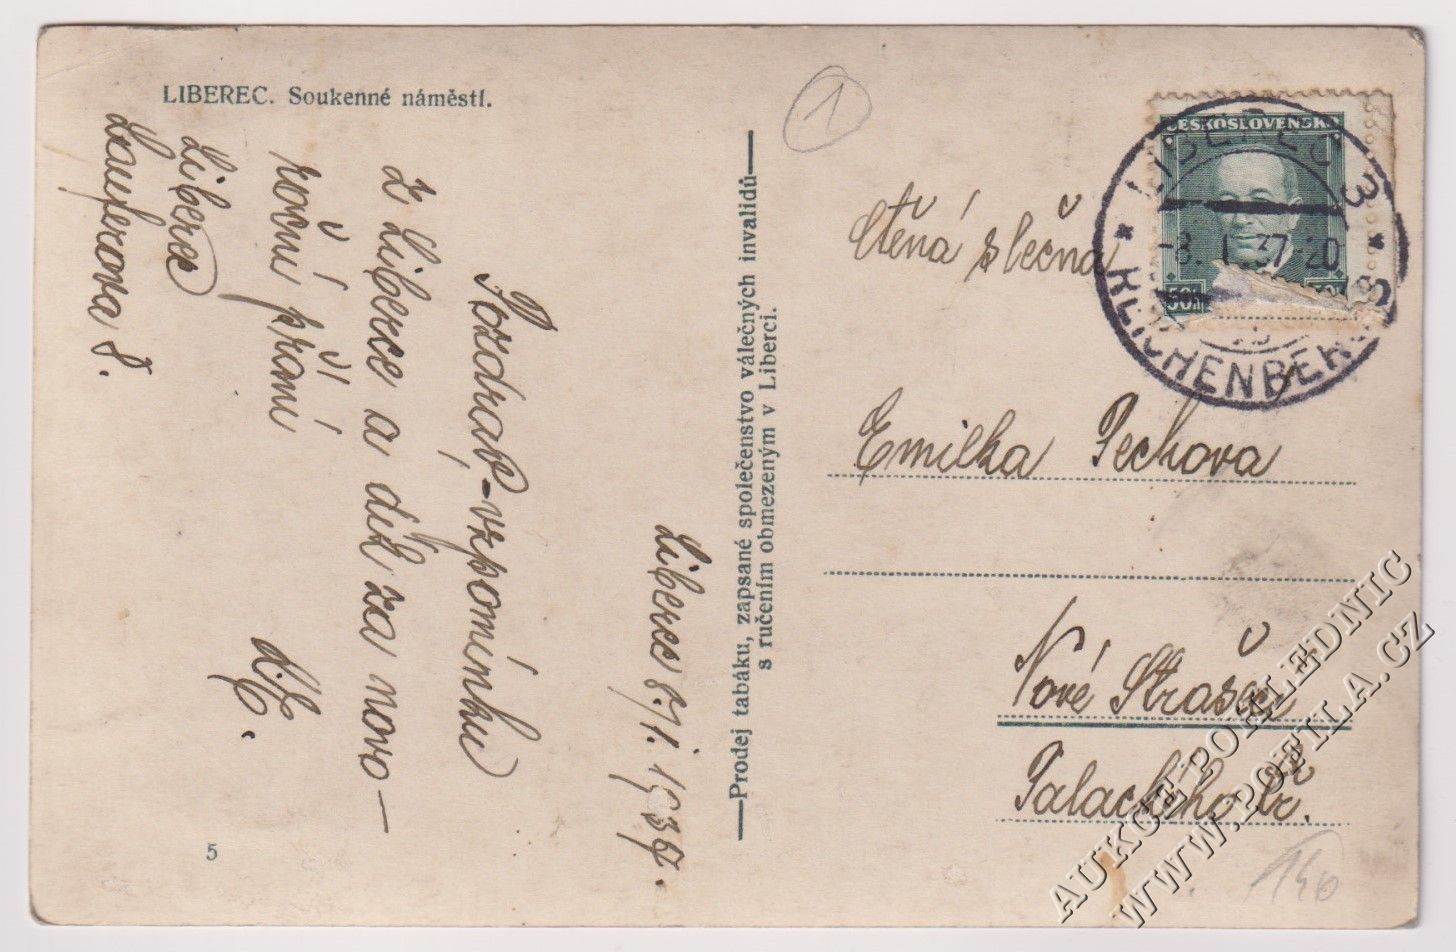 LIBEREC. Soukenné náměstí.
Liberec 8/I. 1937.
Pozdrav-vzpomínku
z Liberce a dík za novo-
roční přání
L.Č.
Liberec
8.
Prodej tabáku, zapsané společenstvo válečných invalidů
s ručením obmezeným v Liberci.
5
1
ČESKOSLOVENSKO
50h
LIBEREC 3
-8. I. 37-20
REICHENBERG
Ctěná slečna
Emilka Pechova
Nové Strašecí
Palackého tř.
140
AUKCE POHLEDNIC
WWW.POFILA.CZ